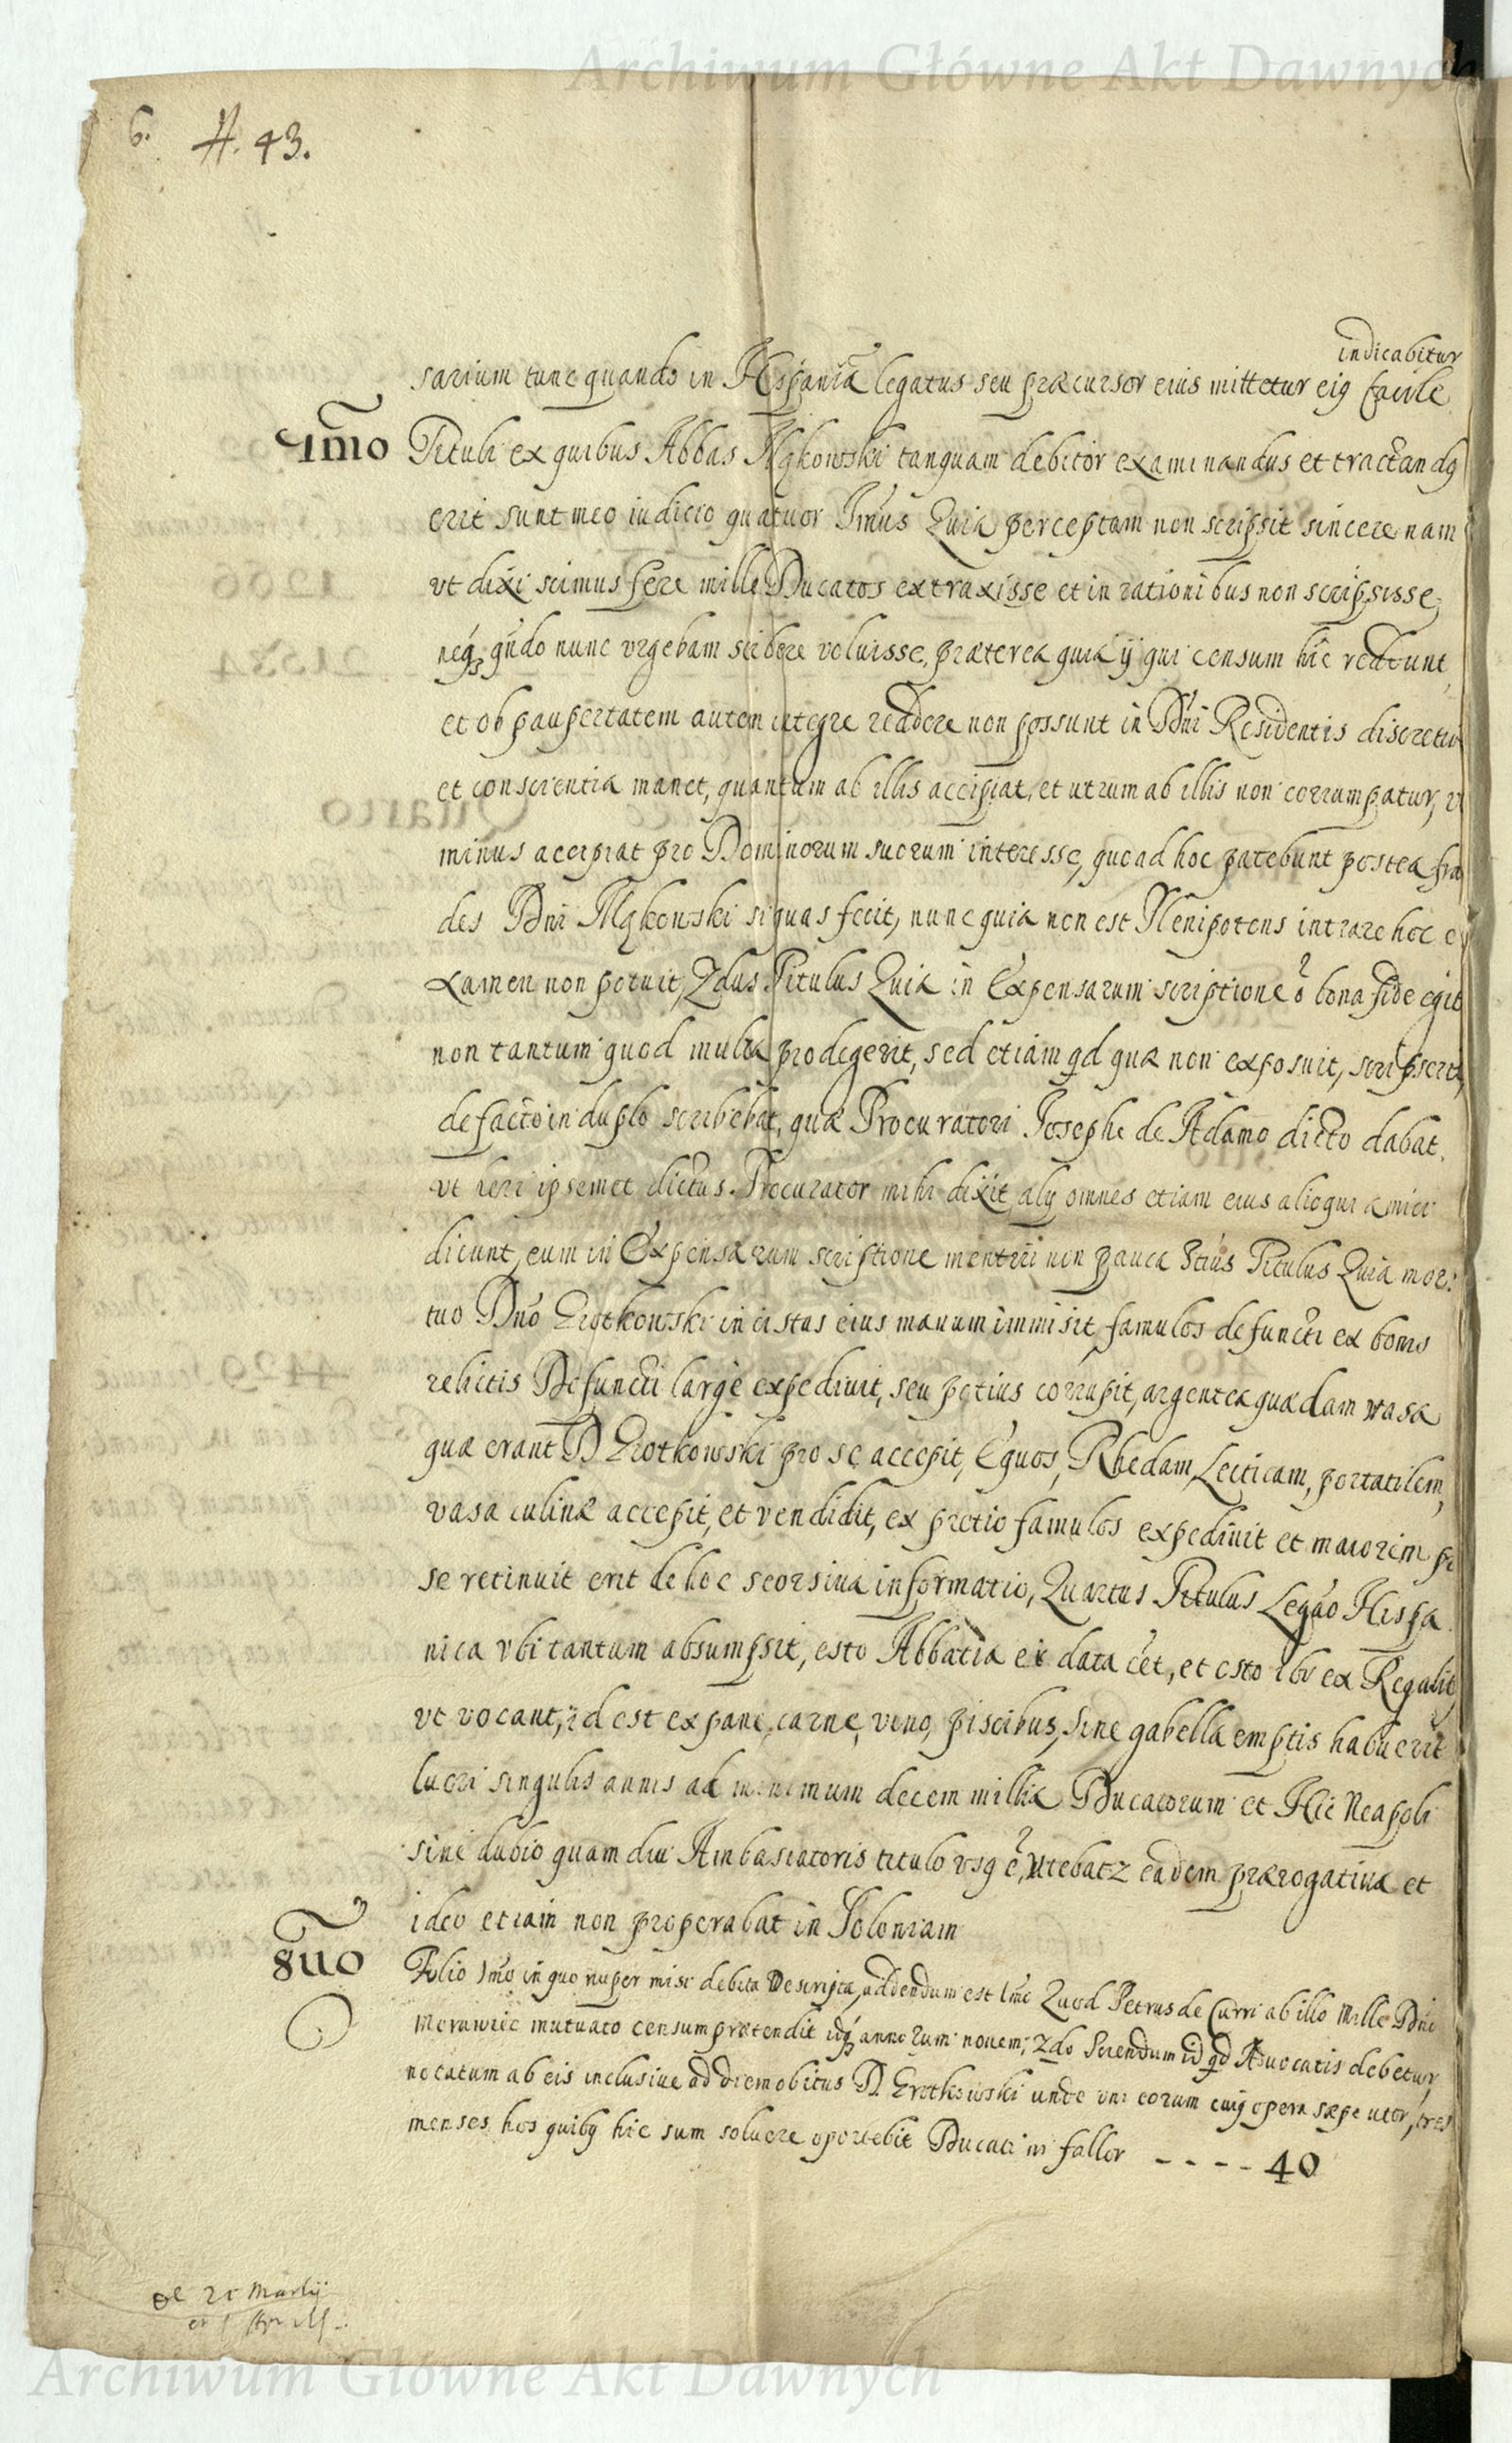 Archiwum Główne Akt Dawnych
6. A. 43.
indicabitur
sarium tunc quando in Hispaniã legatus seu præcursor eius mittetur eiq facile
7mo Tituli ex quibus Abbas Mąkowski tanquam debitor examinandus et tractandq
erit sunt meo iudicio quatuor Imus Quia perceptam non scripsit sincere nam
vt dixi scimus fere mille Ducatos extraxisse et in rationibus non scripsisse,
neq, qñdo nunc vrgebam scribere voluisse, præterea quia ij qui censum hic reddunt
et ob paupertatem autem integre reddere non possunt in Dñi Residentis discreti
et conscientia manet, quantum ab illis accipiat, et utrum ab illis non corrumpatur, v
minus accipiat pro Dominorum suorum interesse, quoad hoc patebunt postea fra
des Dñi Mąkowski si quas fecit, nunc quia non est Plenipotens intrare hoc e
xamen non potuit, 2dus Titulus Quia in Expensarum scriptione õ bona fide egit
non tantum quod multa prodegerit, sed etiam qd quæ non exposuit, scripserit,
de facto in duplo scribebat, quæ Procuratori Josepho de Adamo dicto dabat,
vt heri ipsemet dictus Procurator mihi dixit, alij omnes etiam eius alioqui amici
dicunt, eum in Expensarum scriptione mentiri non pauca 3tius Titulus Quia mor:
tuo Dño Erotkowski in cistas eius manum immisit, famulos defuncti ex bonis
relictis Defuncti large expediuit, seu potius corrupit, argentea quædam vasa
quæ erant D Erotkowski pro se accepit, Equos, Rhedam, Lecticam, portatilem,
vasa culinæ accepit, et vendidit, ex pretio famulos expediuit et maiorem p
se retinuit erit de hoc seorsiua informatio, Quartus Titulus Legão Hispa
nica vbi tantum absumpsit, esto Abbatia ei data eët, et esto ibi ex Regalit
vt vocant, id est ex pane, carne, vino, piscibus, sine gabella emptis habuerit
lucri singulis annis ad minimum decem millia Ducatorum et Hic Neapoli
sine dubio quam diu Ambasiatoris titulo vsq ẽ, vtebatz eadem prærogatiua et
ideo etiam non properabat in Poloniam
8uo Folio 1mo in quo nuper misi debita Descripta, addendum est 1mo Quod Petrus de Curri ab illo Mille Dñi
Morawiec mutuato censum prætendit idq annorum nouem, 2do Sciendum id qd Aduocatis debetur,
notatum ab eis inclusiue ad diem obitus D. Erotkowski unde vni eorum cuiq opera sæpe utor, tres
menses hos quibq hic sum soluere oportebit Ducati ni fallor - - - - 40
de 21 Martij
Archiwum Główne Akt Dawnych